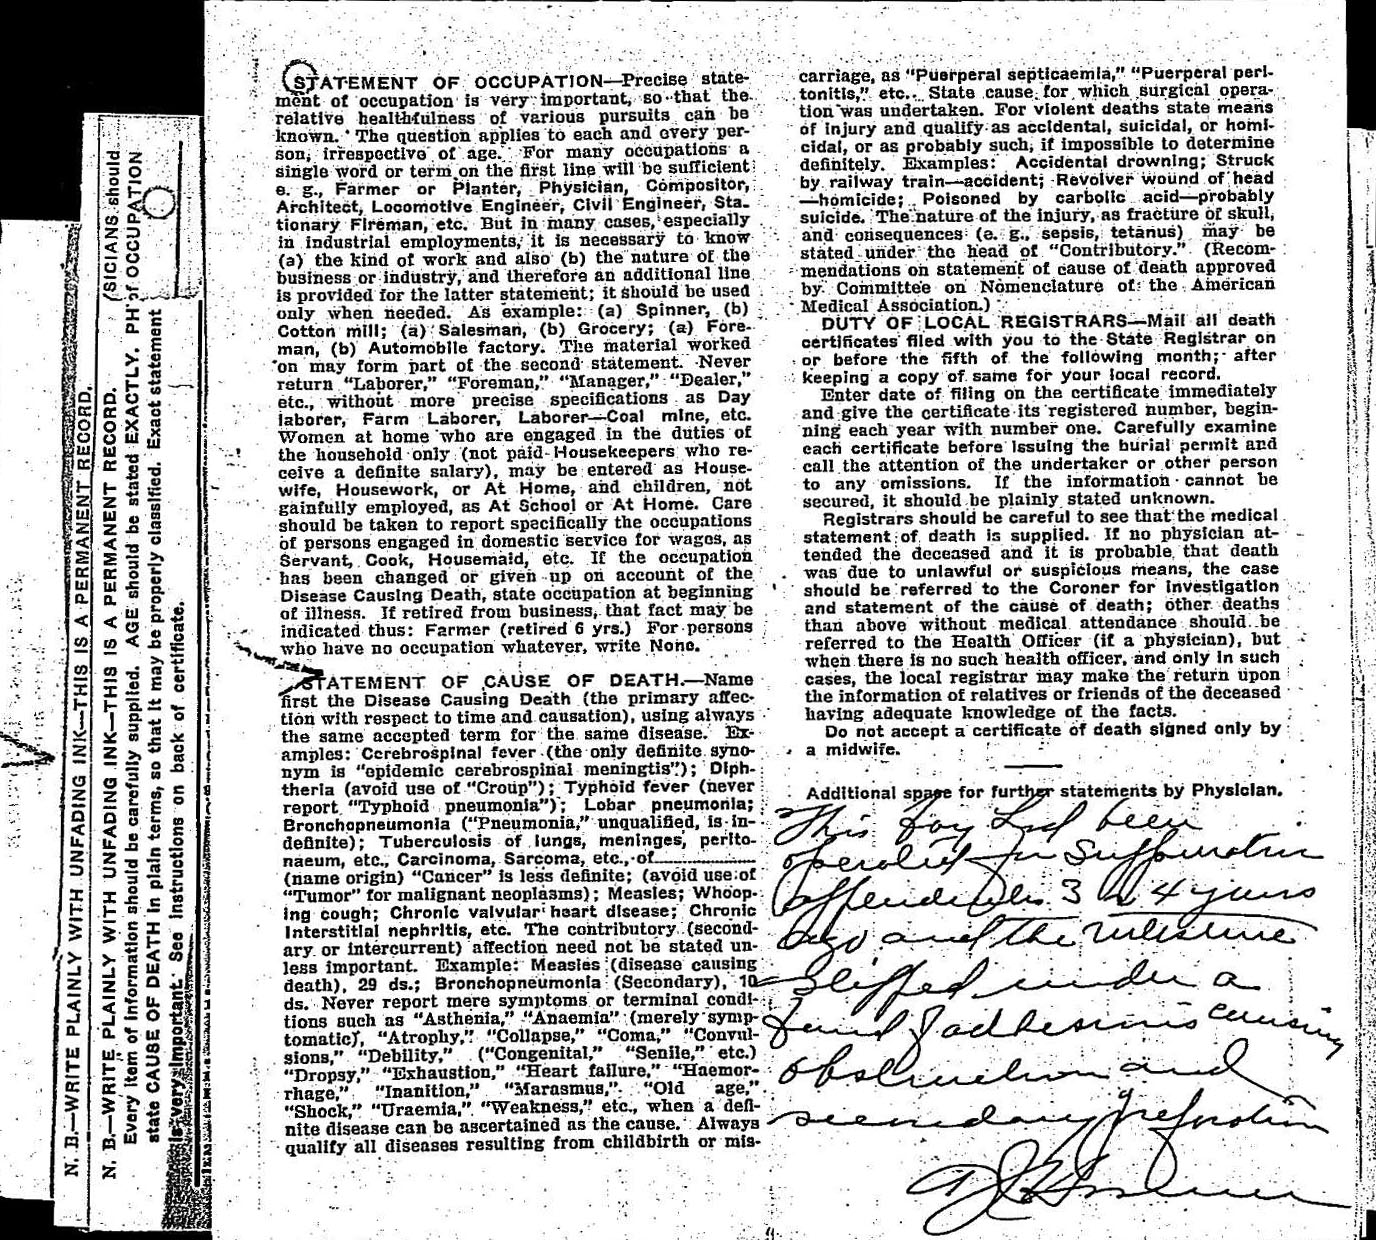 STATEMENT OF OCCUPATION—Precise state-
ment of occupation is very important, so that the
relative healthfulness of various pursuits can be
known. The question applies to each and every per-
son, irrespective of age. For many occupations a
single word or term on the first line will be sufficient
e. g., Farmer or Planter, Physician, Compositor,
Architect, Locomotive Engineer, Civil Engineer, Sta-
tionary Fireman, etc. But in many cases, especially
in industrial employments, it is necessary to know
(a) the kind of work and also (b) the nature of the
business or industry, and therefore an additional line
is provided for the latter statement; it should be used
only when needed. As example: (a) Spinner, (b)
Cotton mill; (a) Salesman, (b) Grocery; (a) Fore-
man, (b) Automobile factory. The material worked
on may form part of the second statement. Never
return "Laborer," "Foreman," "Manager," "Dealer,"
etc., without more precise specifications as Day
laborer, Farm Laborer, Laborer—Coal mine, etc.
Women at home who are engaged in the duties of
the household only (not paid Housekeepers who re-
ceive a definite salary), may be entered as House-
wife, Housework, or At Home, and children, not
gainfully employed, as At School or At Home. Care
should be taken to report specifically the occupations
of persons engaged in domestic service for wages, as
Servant, Cook, Housemaid, etc. If the occupation
has been changed or given up on account of the
Disease Causing Death, state occupation at beginning
of illness. If retired from business, that fact may be
indicated thus: Farmer (retired 6 yrs.) For persons
who have no occupation whatever, write None.
STATEMENT OF CAUSE OF DEATH.—Name
first the Disease Causing Death (the primary affec-
tion with respect to time and causation), using always
the same accepted term for the same disease. Ex-
amples: Cerebrospinal fever (the only definite syno-
nym is "epidemic cerebrospinal meningtis"); Diph-
theria (avoid use of "Croup"); Typhoid fever (never
report "Typhoid pneumonia"); Lobar pneumonia;
Bronchopneumonia ("Pneumonia," unqualified, is in-
definite); Tuberculosis of lungs, meninges, perito-
naeum, etc., Carcinoma, Sarcoma, etc., of................
(name origin) "Cancer" is less definite; (avoid use of
"Tumor" for malignant neoplasms); Measles; Whoop-
ing cough; Chronic valvular heart disease; Chronic
Interstitial nephritis, etc. The contributory (second-
ary or intercurrent) affection need not be stated un-
less important. Example: Measles (disease causing
death), 29 ds.; Bronchopneumonia (Secondary), 10
ds. Never report mere symptoms or terminal condi-
tions such as "Asthenia," "Anaemia" (merely symp-
tomatic), "Atrophy," "Collapse," "Coma," "Convul-
sions," "Debility," ("Congenital," "Senile," etc.)
"Dropsy," "Exhaustion," "Heart failure," "Haemor-
rhage," "Inanition," "Marasmus," "Old age,"
"Shock," "Uraemia," "Weakness," etc., when a defi-
nite disease can be ascertained as the cause. Always
qualify all diseases resulting from childbirth or mis-
carriage, as "Puerperal septicaemia," "Puerperal peri-
tonitis," etc. State cause for which surgical opera-
tion was undertaken. For violent deaths state means
of injury and qualify as accidental, suicidal, or homi-
cidal, or as probably such, if impossible to determine
definitely. Examples: Accidental drowning; Struck
by railway train—accident; Revolver wound of head
—homicide; Poisoned by carbolic acid—probably
suicide. The nature of the injury, as fracture of skull,
and consequences (e. g., sepsis, tetanus) may be
stated under the head of "Contributory." (Recom-
mendations on statement of cause of death approved
by Committee on Nomenclature of the American
Medical Association.)
DUTY OF LOCAL REGISTRARS—Mail all death
certificates filed with you to the State Registrar on
or before the fifth of the following month; after
keeping a copy of same for your local record.
Enter date of filing on the certificate immediately
and give the certificate its registered number, begin-
ning each year with number one. Carefully examine
each certificate before issuing the burial permit and
call the attention of the undertaker or other person
to any omissions. If the information cannot be
secured, it should be plainly stated unknown.
Registrars should be careful to see that the medical
statement of death is supplied. If no physician at-
tended the deceased and it is probable that death
was due to unlawful or suspicious means, the case
should be referred to the Coroner for investigation
and statement of the cause of death; other deaths
than above without medical attendance should be
referred to the Health Officer (if a physician), but
when there is no such health officer, and only in such
cases, the local registrar may make the return upon
the information of relatives or friends of the deceased
having adequate knowledge of the facts.
Do not accept a certificate of death signed only by
a midwife.
Additional space for further statements by Physician.
This boy had been
operated for suppurative
appendicitis 3 or 4 years
ago and the intestine
slipped under a
band of adhesions causing
obstruction and
secondary perforation
N. B.—WRITE PLAINLY WITH UNFADING INK—THIS IS A PERMANENT RECORD.
N. B.—WRITE PLAINLY WITH UNFADING INK—THIS IS A PERMANENT RECORD.
Every item of information should be carefully supplied. AGE should be stated EXACTLY. PHYSICIANS should
state CAUSE OF DEATH in plain terms, so that it may be properly classified. Exact statement of OCCUPATION
is very important. See instructions on back of certificate.